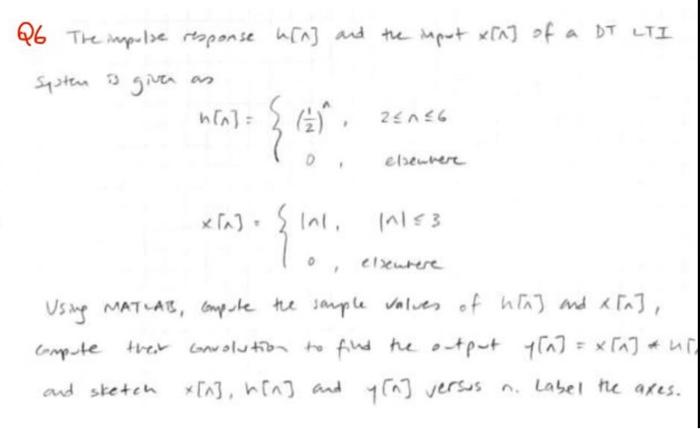 Q6 The impulse response h[n] and the input x[n] of a DT LTI
System is given as
h[n] = { (1/2)^n , 2≤n≤6
0 , elsewhere
x[n] = { |n|, |n|≤3
0 , elsewhere
Using MATLAB, compute the sample values of h[n] and x[n],
compute their convolution to find the output y[n] = x[n] * h[
and sketch x[n], h[n] and y[n] versus n. Label the axes.